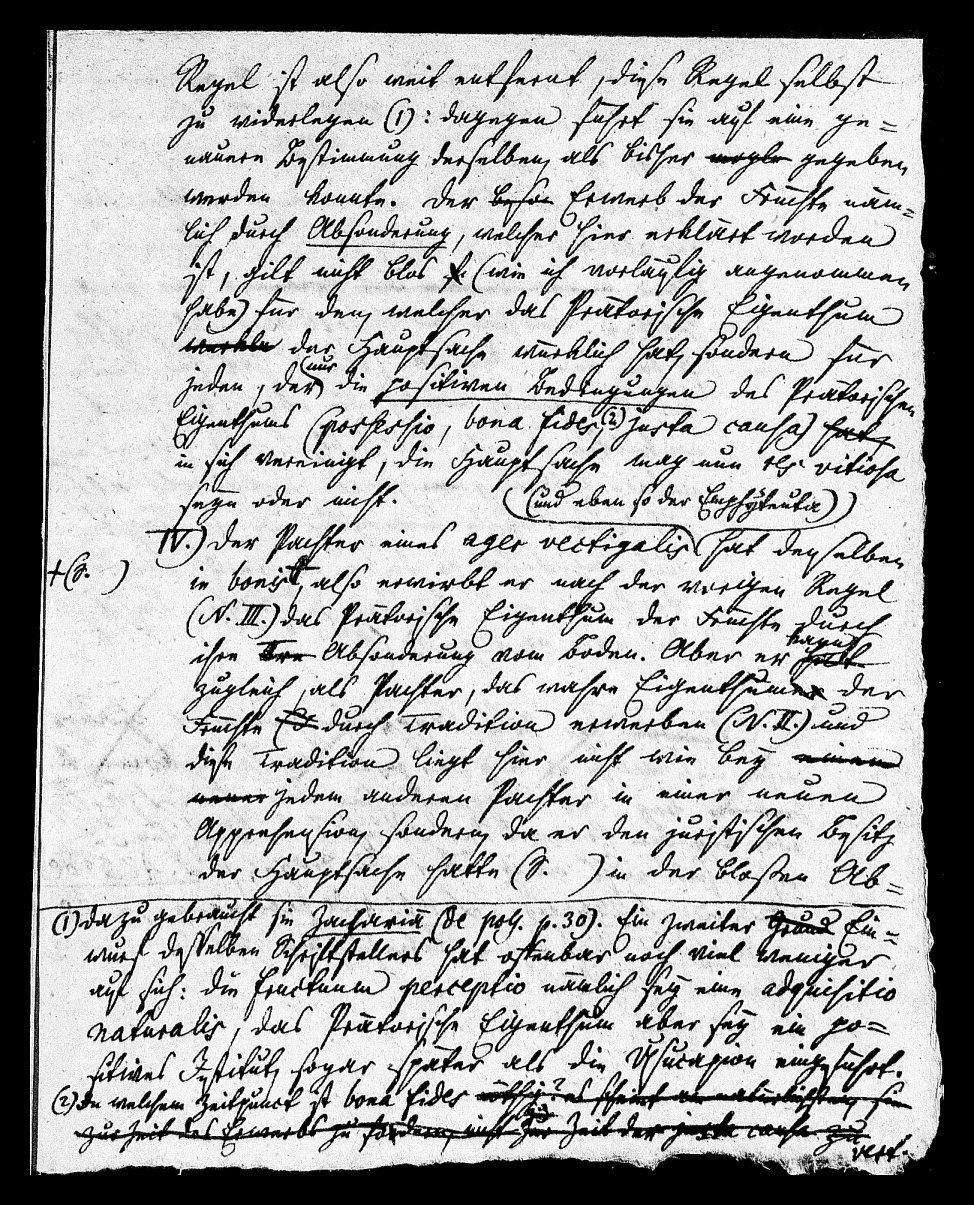 Regel ist also weit entfernt, diese Regel selbst
zu widerlegen (1): dagegen führt sie auf eine ge=
nauere Bestimmung derselben, als bisher gegeben
werden konnte. Der Erwerb der Früchte näm=
lich durch Absonderung, welcher hier erklärt worden
ist, gilt nicht blos (wie ich vorläufig angenommen
habe) für den, welcher das Prätorische Eigenthum
der Hauptsache würklich hat, sondern für
jeden, der nur die positiven Bedingungen des Prätorischen
Eigenthums (possessio, bona fides,(2) justa causa) hat,
in sich vereinigt, die Hauptsache mag nun res vitiosa
seyn oder nicht.
(und eben so der Emphyteuta)
IV.) Der Pachter eines ager vectigalis hat denselben
+(S. )
in bonis+, also erwirbt er nach der vorigen Regel
(N. III.) das Prätorische Eigenthum der Früchte durch
ihre Absonderung vom Boden. Aber er kann
zugleich, als Pachter, das wahre Eigenthum der
Früchte durch Tradition erwerben (N. II.) und
diese Tradition liegt hier nicht wie bey einem
neuen jedem anderen Pachter in einer neuen
Apprehension, sondern, da er den juristischen Besitz
der Hauptsache hatte (S. ) in der bloßen Ab=
(1) dazu gebraucht sie Zachariä (de poss. p. 30). Ein zweiter Grund Ein=
wurf desselben Schriftstellers hat offenbar noch viel weniger
auf sich: die fructuum perceptio nämlich sey eine adquisitio
naturalis, das Prätorische Eigenthum aber sey ein po=
sitives Institut, sogar später als die Usucapion eingeführt.
(2) In welchem Zeitpunct ist bona fides nöthig? es scheint am natürlichsten, sie
zur Zeit des Erwerbs zu fordern, nicht zur Zeit der justa causa zu
vert.